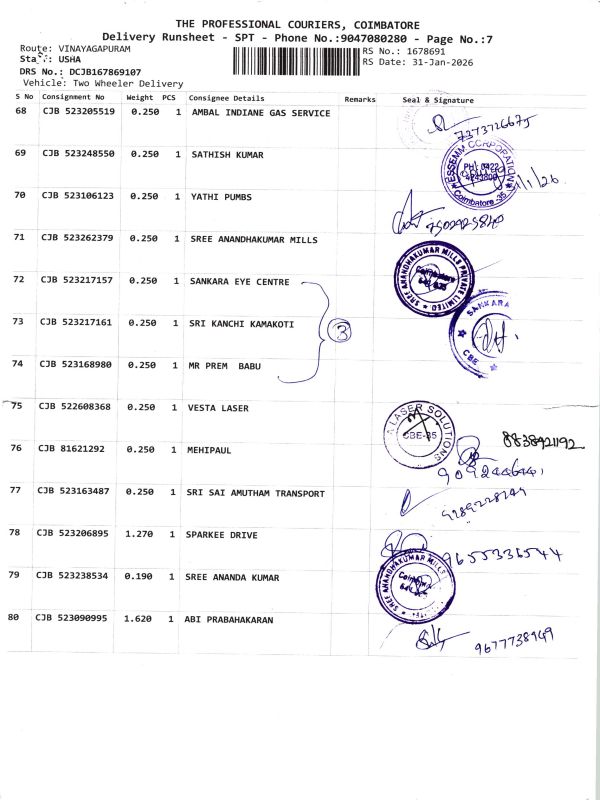 THE PROFESSIONAL COURIERS, COIMBATORE
Delivery Runsheet - SPT - Phone No.:9047080280 - Page No.:7
Route: VINAYAGAPURAM
RS No.: 1678691
Staff: USHA
RS Date: 31-Jan-2026
DRS No.: DCJB167869107
Vehicle: Two Wheeler Delivery
S No Consignment No Weight PCS Consignee Details Remarks Seal & Signature
68 CJB 523205519 0.250 1 AMBAL INDIANE GAS SERVICE
7373726675
69 CJB 523248550 0.250 1 SATHISH KUMAR
ESSEMM CORPORATION
PH: 0422
Coimbatore -35
70 CJB 523106123 0.250 1 YATHI PUMBS
71 CJB 523262379 0.250 1 SREE ANANDHAKUMAR MILLS
SREE ANANDHAKUMAR MILLS PRIVATE LIMITED
Coimbatore
72 CJB 523217157 0.250 1 SANKARA EYE CENTRE
SANKARA
CBE
73 CJB 523217161 0.250 1 SRI KANCHI KAMAKOTI
3
74 CJB 523168980 0.250 1 MR PREM BABU
75 CJB 522608368 0.250 1 VESTA LASER
LASER SOLUTIONS
CBE-35
8838921192
76 CJB 81621292 0.250 1 MEHIPAUL
77 CJB 523163487 0.250 1 SRI SAI AMUTHAM TRANSPORT
78 CJB 523206895 1.270 1 SPARKEE DRIVE
9655336544
79 CJB 523238534 0.190 1 SREE ANANDA KUMAR
SREE ANANDHAKUMAR MILLS
80 CJB 523090995 1.620 1 ABI PRABAHAKARAN
9677738949